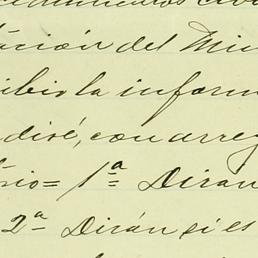 ación del Min
ibió la inform
diré, con arreg
rio = 1ª = Diran
2ª = Dirán si es